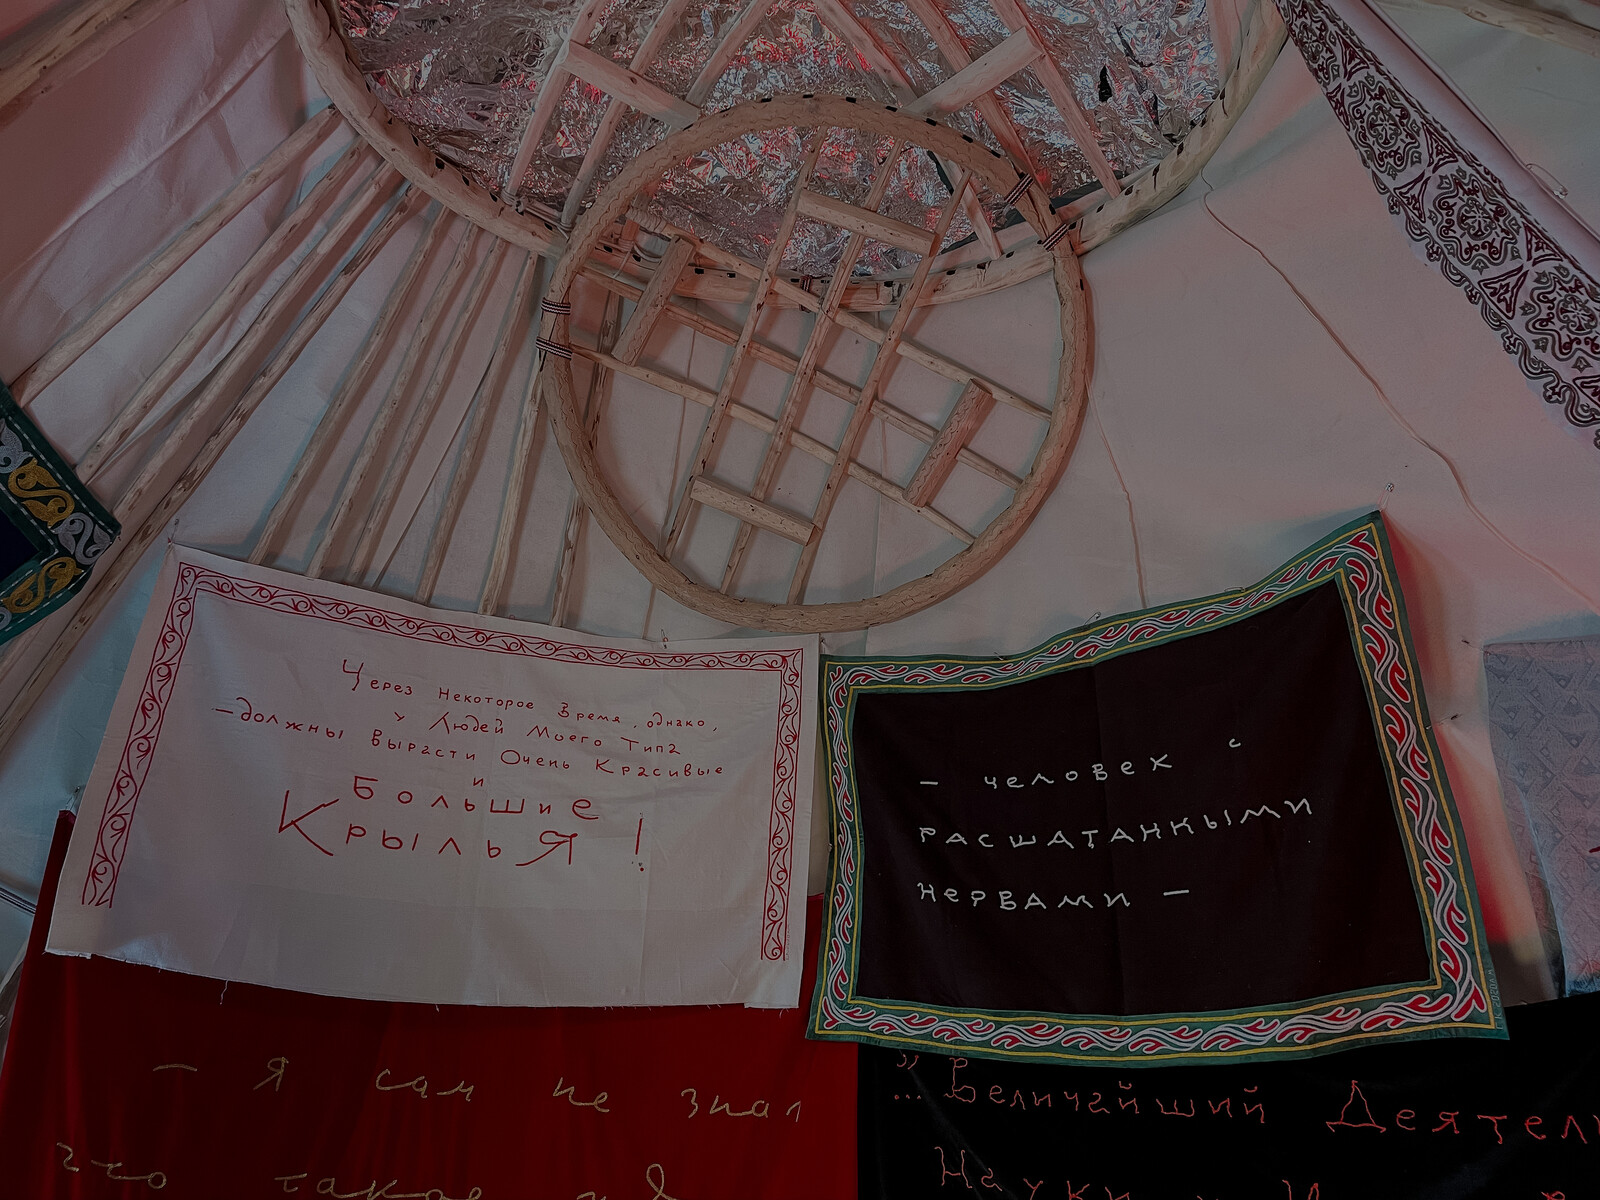 Через Некоторое Время, однако,
у Людей Моего Типа
— должны вырасти Очень Красивые
и
Большие
Крылья !
— человек с
РАСШАТАННЫМИ
НЕРВАМИ —
— Я сам не знал
что такое
„ ... Величайший Деятель
Науки и